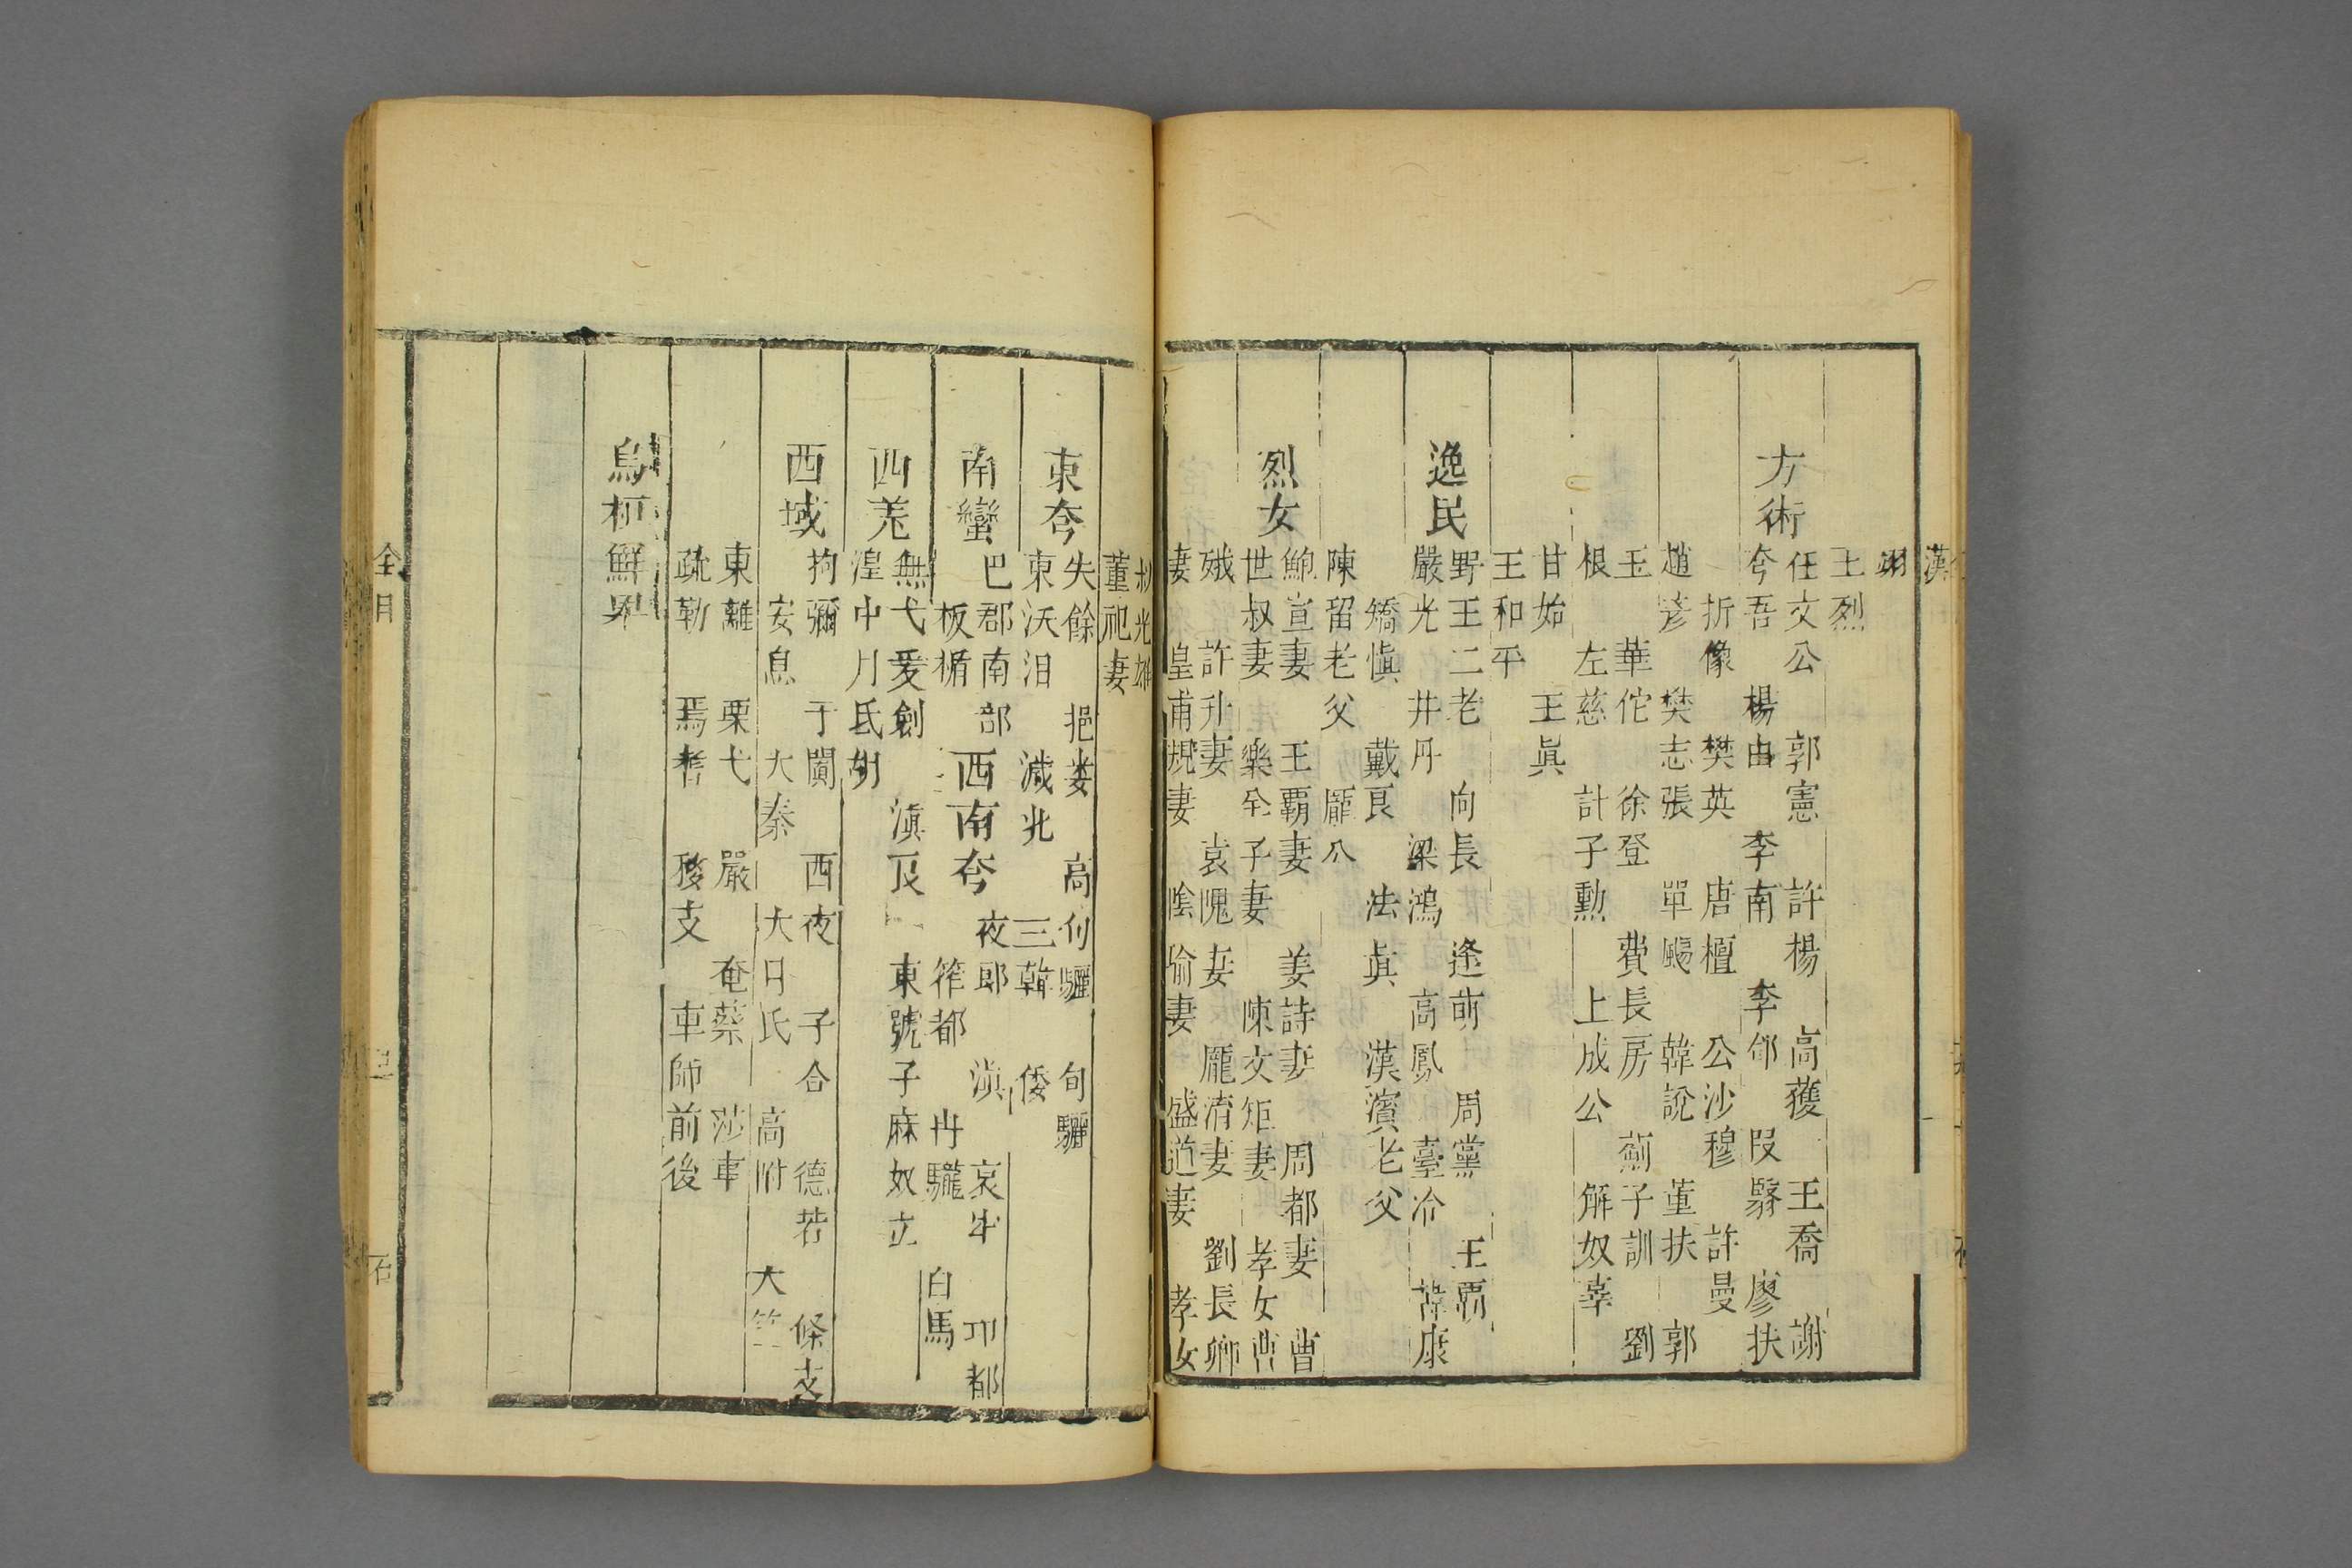 漢
翊
王烈
方術
任文公 郭憲 許楊 高獲 王喬 謝
夸吾 楊由 李南 李郃 段翳 廖扶
折像 樊英 唐檀 公沙穆 許曼
趙彦 樊志張 單颺 韓說 董扶 郭
玉 華佗 徐登 費長房 薊子訓 劉
根 左慈 計子勲 上成公 解奴辜
甘始 王眞
王和平
逸民
野王二老 向長 逄萌 周黨 王覇
嚴光 井丹 梁鴻 高鳳 臺佟 韓康
矯慎 戴良 法眞 漢濱老父
陳留老父 龐公
烈女
鮑宣妻 王覇妻 姜詩妻 周都妻 曹
世叔妻 樂羊子妻 陳文矩妻 孝女曹
娥 許升妻 袁隗妻 龐淯妻 劉長卿
妻 皇甫規妻 陰瑜妻 盛道妻 孝女
叔光雄
董祀妻
東夸
夫餘 挹婁 高句驪 句驪
東沃沮 濊北 三韓 倭
南蠻
巴郡南郡
板楯
西南夸
夜郎 滇 哀牢 卭都
筰都 冉駹 白馬
西羌
無弋爰劍 滇良 東號子麻奴立
湟中月氏胡
西域
拘彌 于闐 西夜 子合 德若 條支
安息 大秦 大月氏 高附 大竺
東離 栗弋 嚴 奄蔡 莎車
疏勒 焉耆 移支 車師前後
烏桓鮮卑
全目